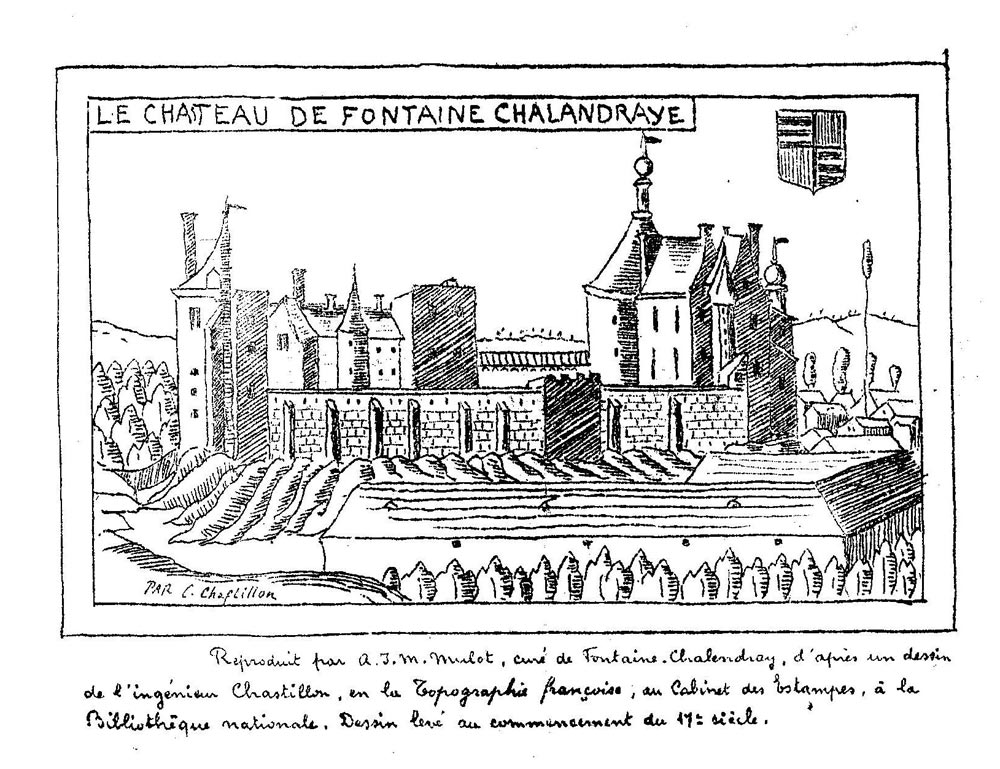 LE CHASTEAU DE FONTAINE CHALANDRAYE
PAR C. Chastillon
Reproduit par A.J.M. Mulot, curé de Fontaine-Chalendray, d'après un dessin
de l'ingénieur Chastillon, en la Topographie françoise, au Cabinet des Estampes, à la
Bibliothèque nationale. Dessin levé au commencement du 17e siècle.